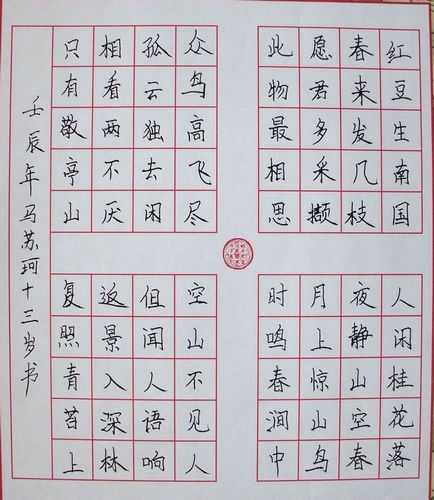 红豆生南国
春来发几枝
愿君多采撷
此物最相思
人闲桂花落
夜静山空春
月上惊山鸟
时鸣春涧中
众鸟高飞尽
孤云独去闲
相看两不厌
只有敬亭山
空山不见人
但闻人语响
返景入深林
复照青苔上
壬辰年马苏珂十三岁书